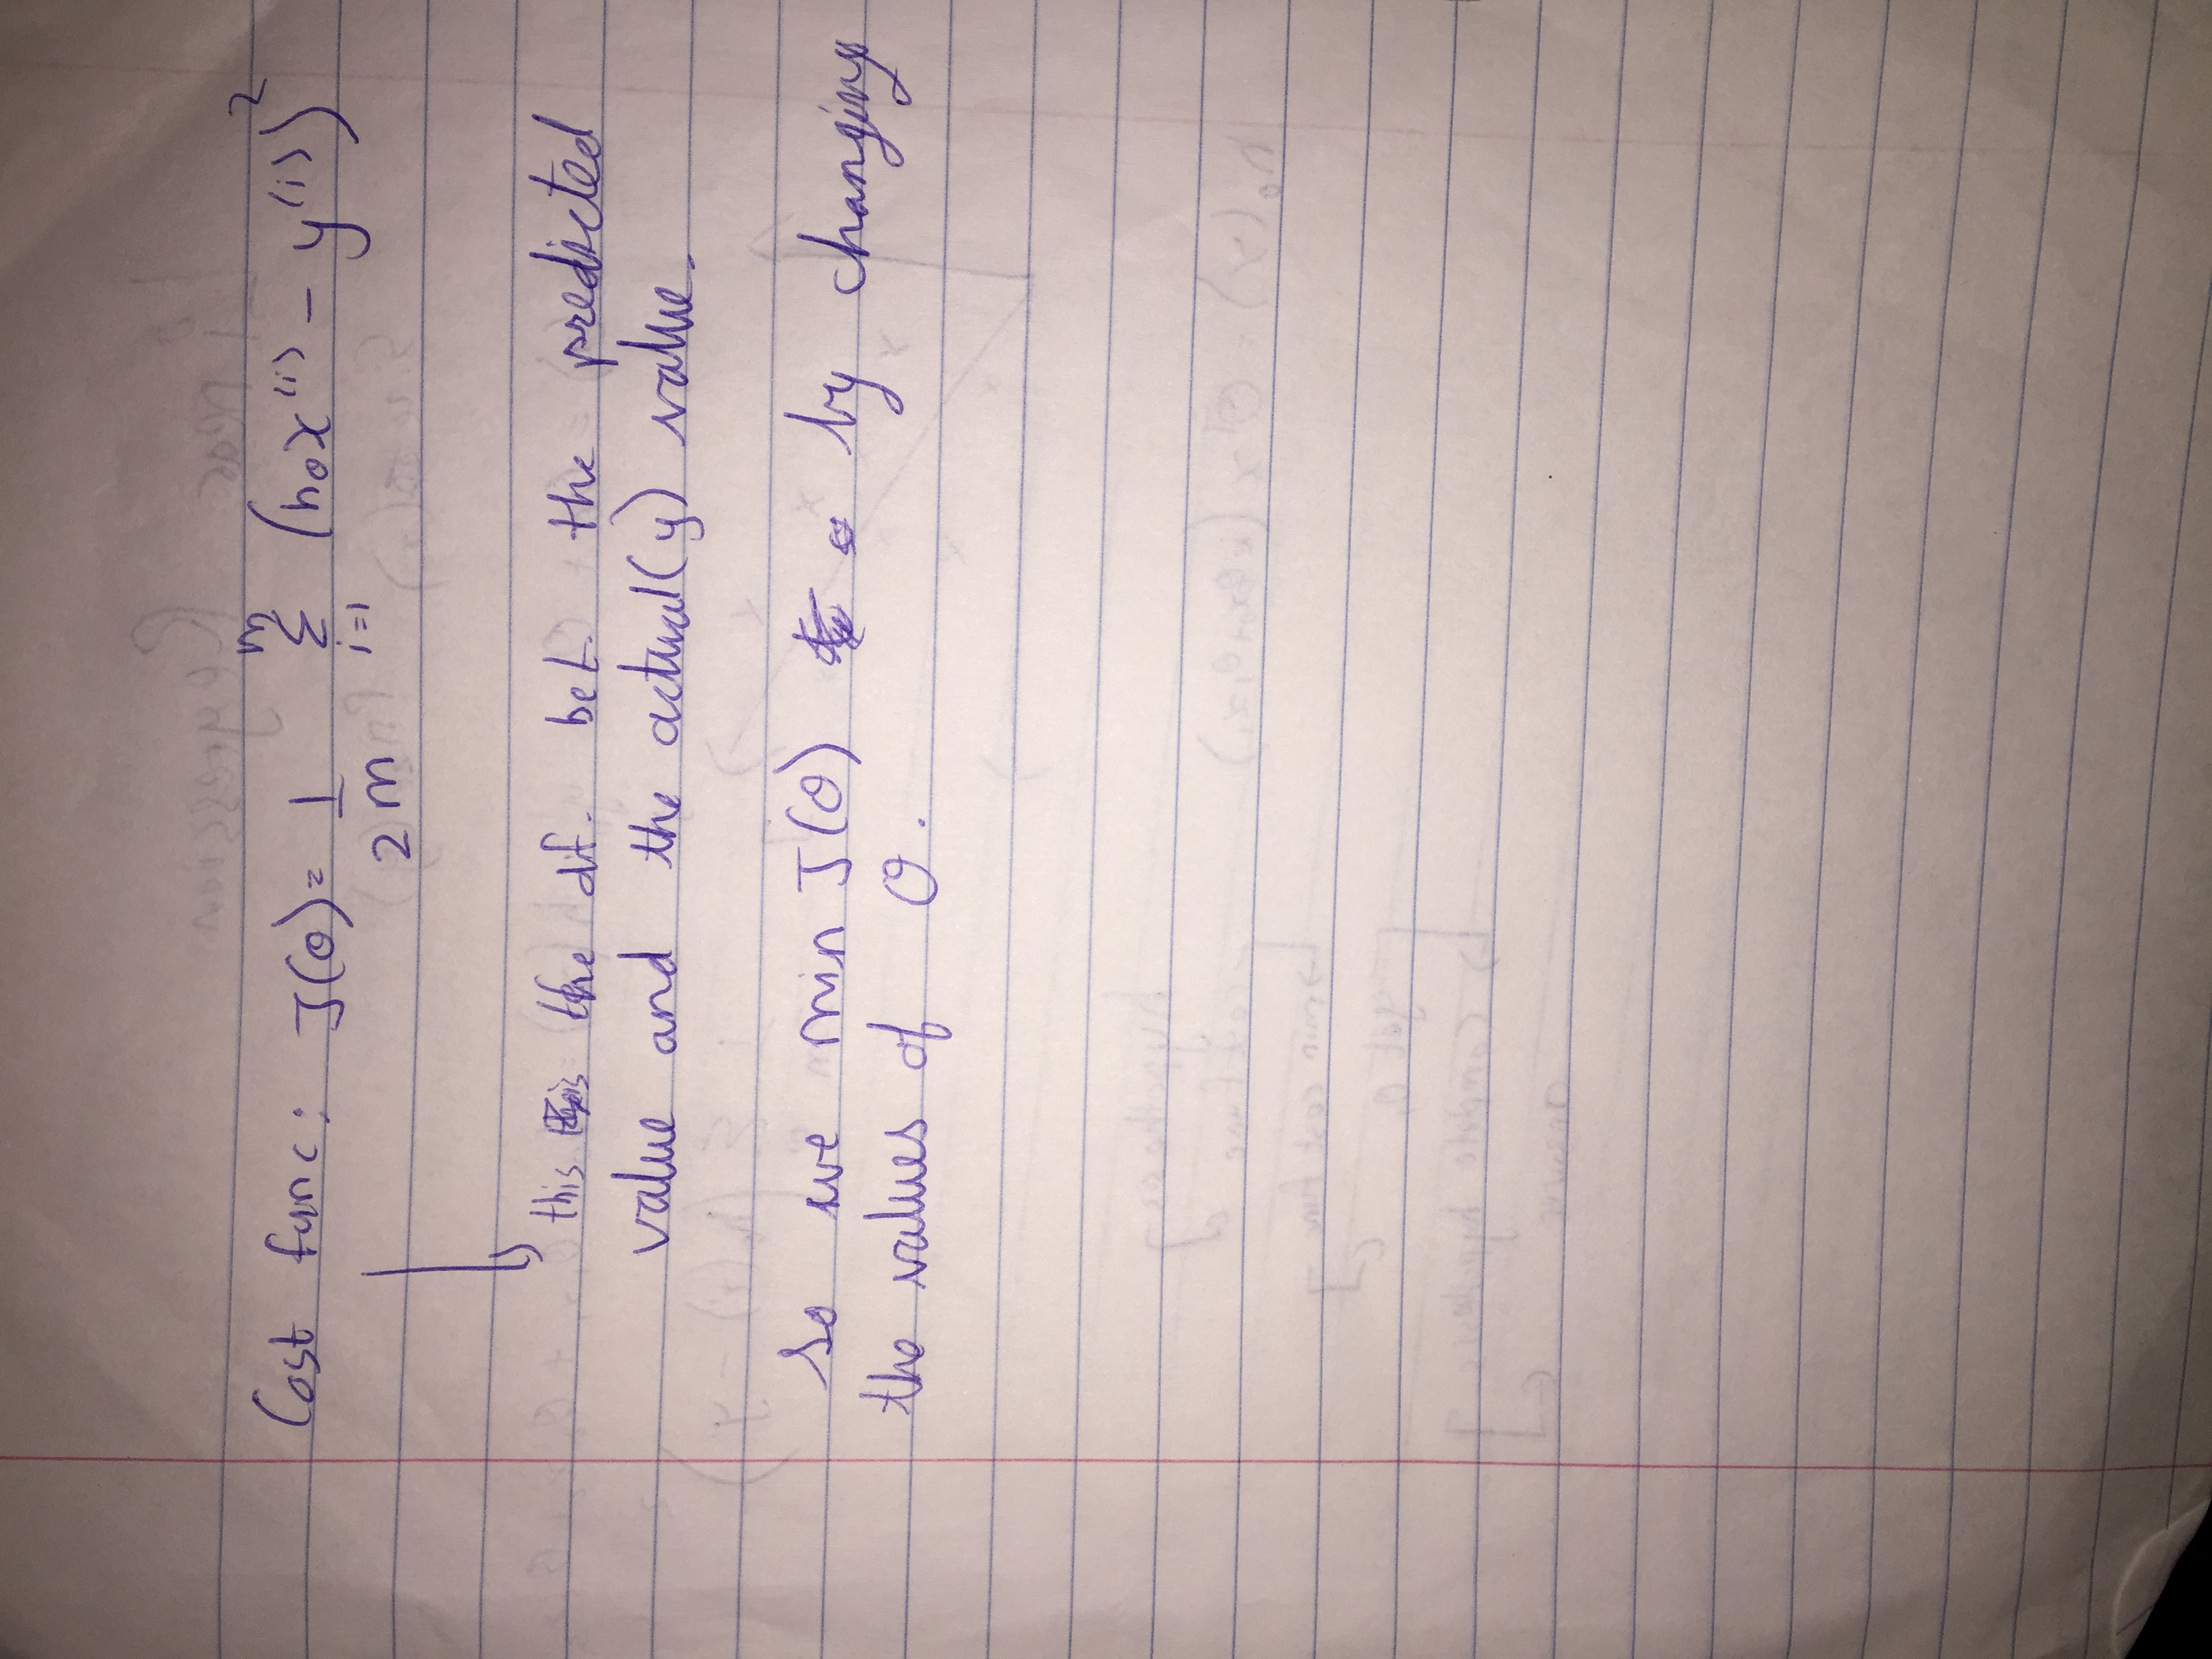 Cost func: J(θ) = 1/2m Σ i=1 m (hθx⁽ⁱ⁾ - y⁽ⁱ⁾)²
this is the dif. bet. the predicted
value and the actual(y) value.
So we min J(θ) by changing
the values of θ.